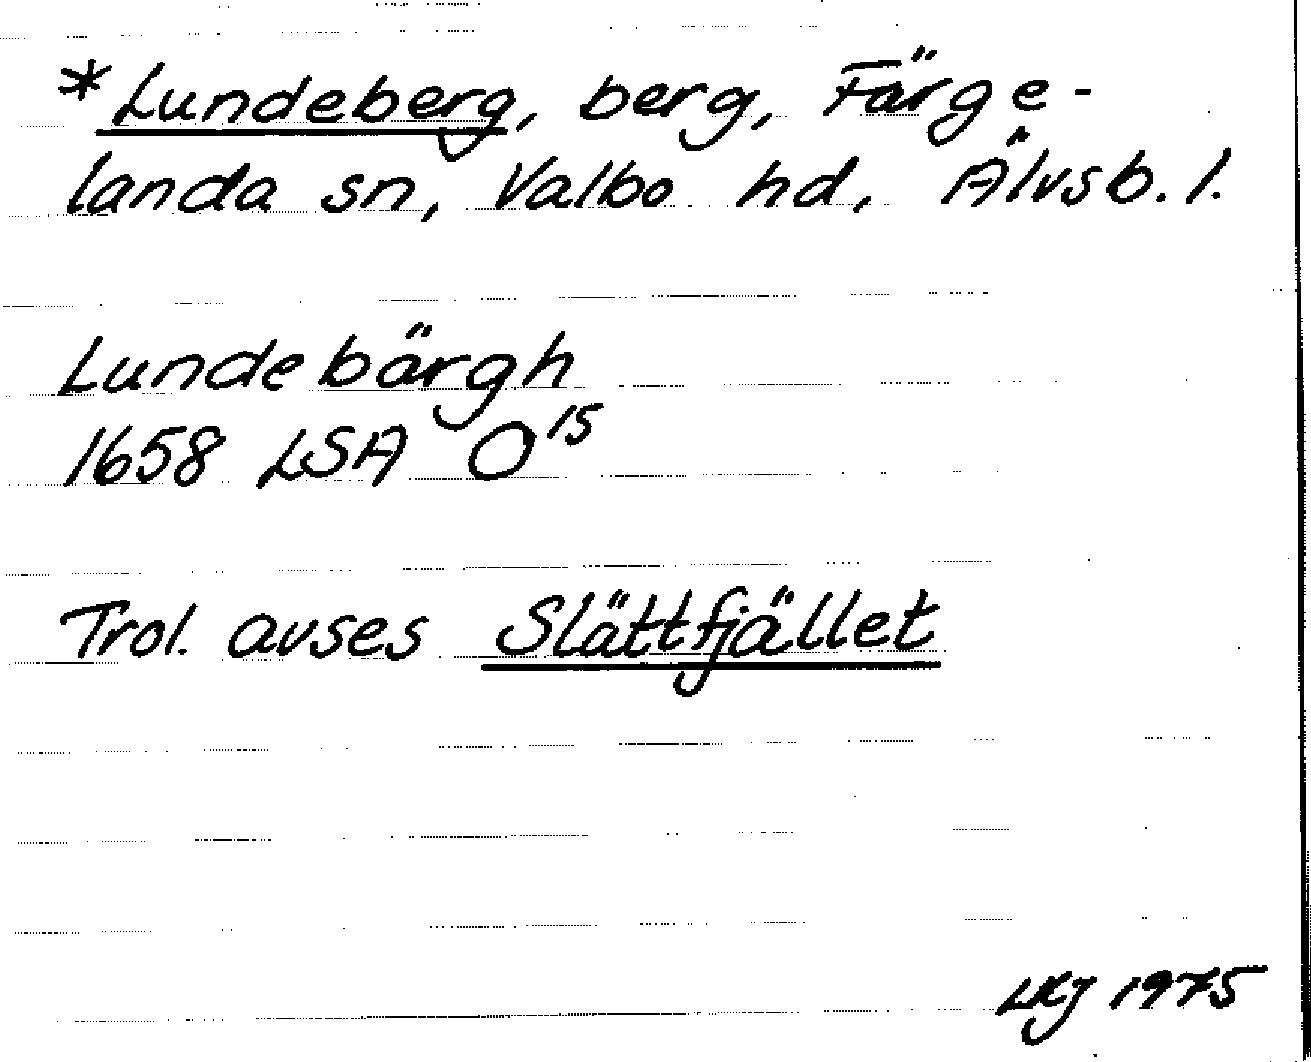 *Lundeberg, berg, Färge-
landa sn, Valbo hd, Älvsb. l.
Lundebärgh
1658 LSA O15
Trol. avses Slättfjället
1975